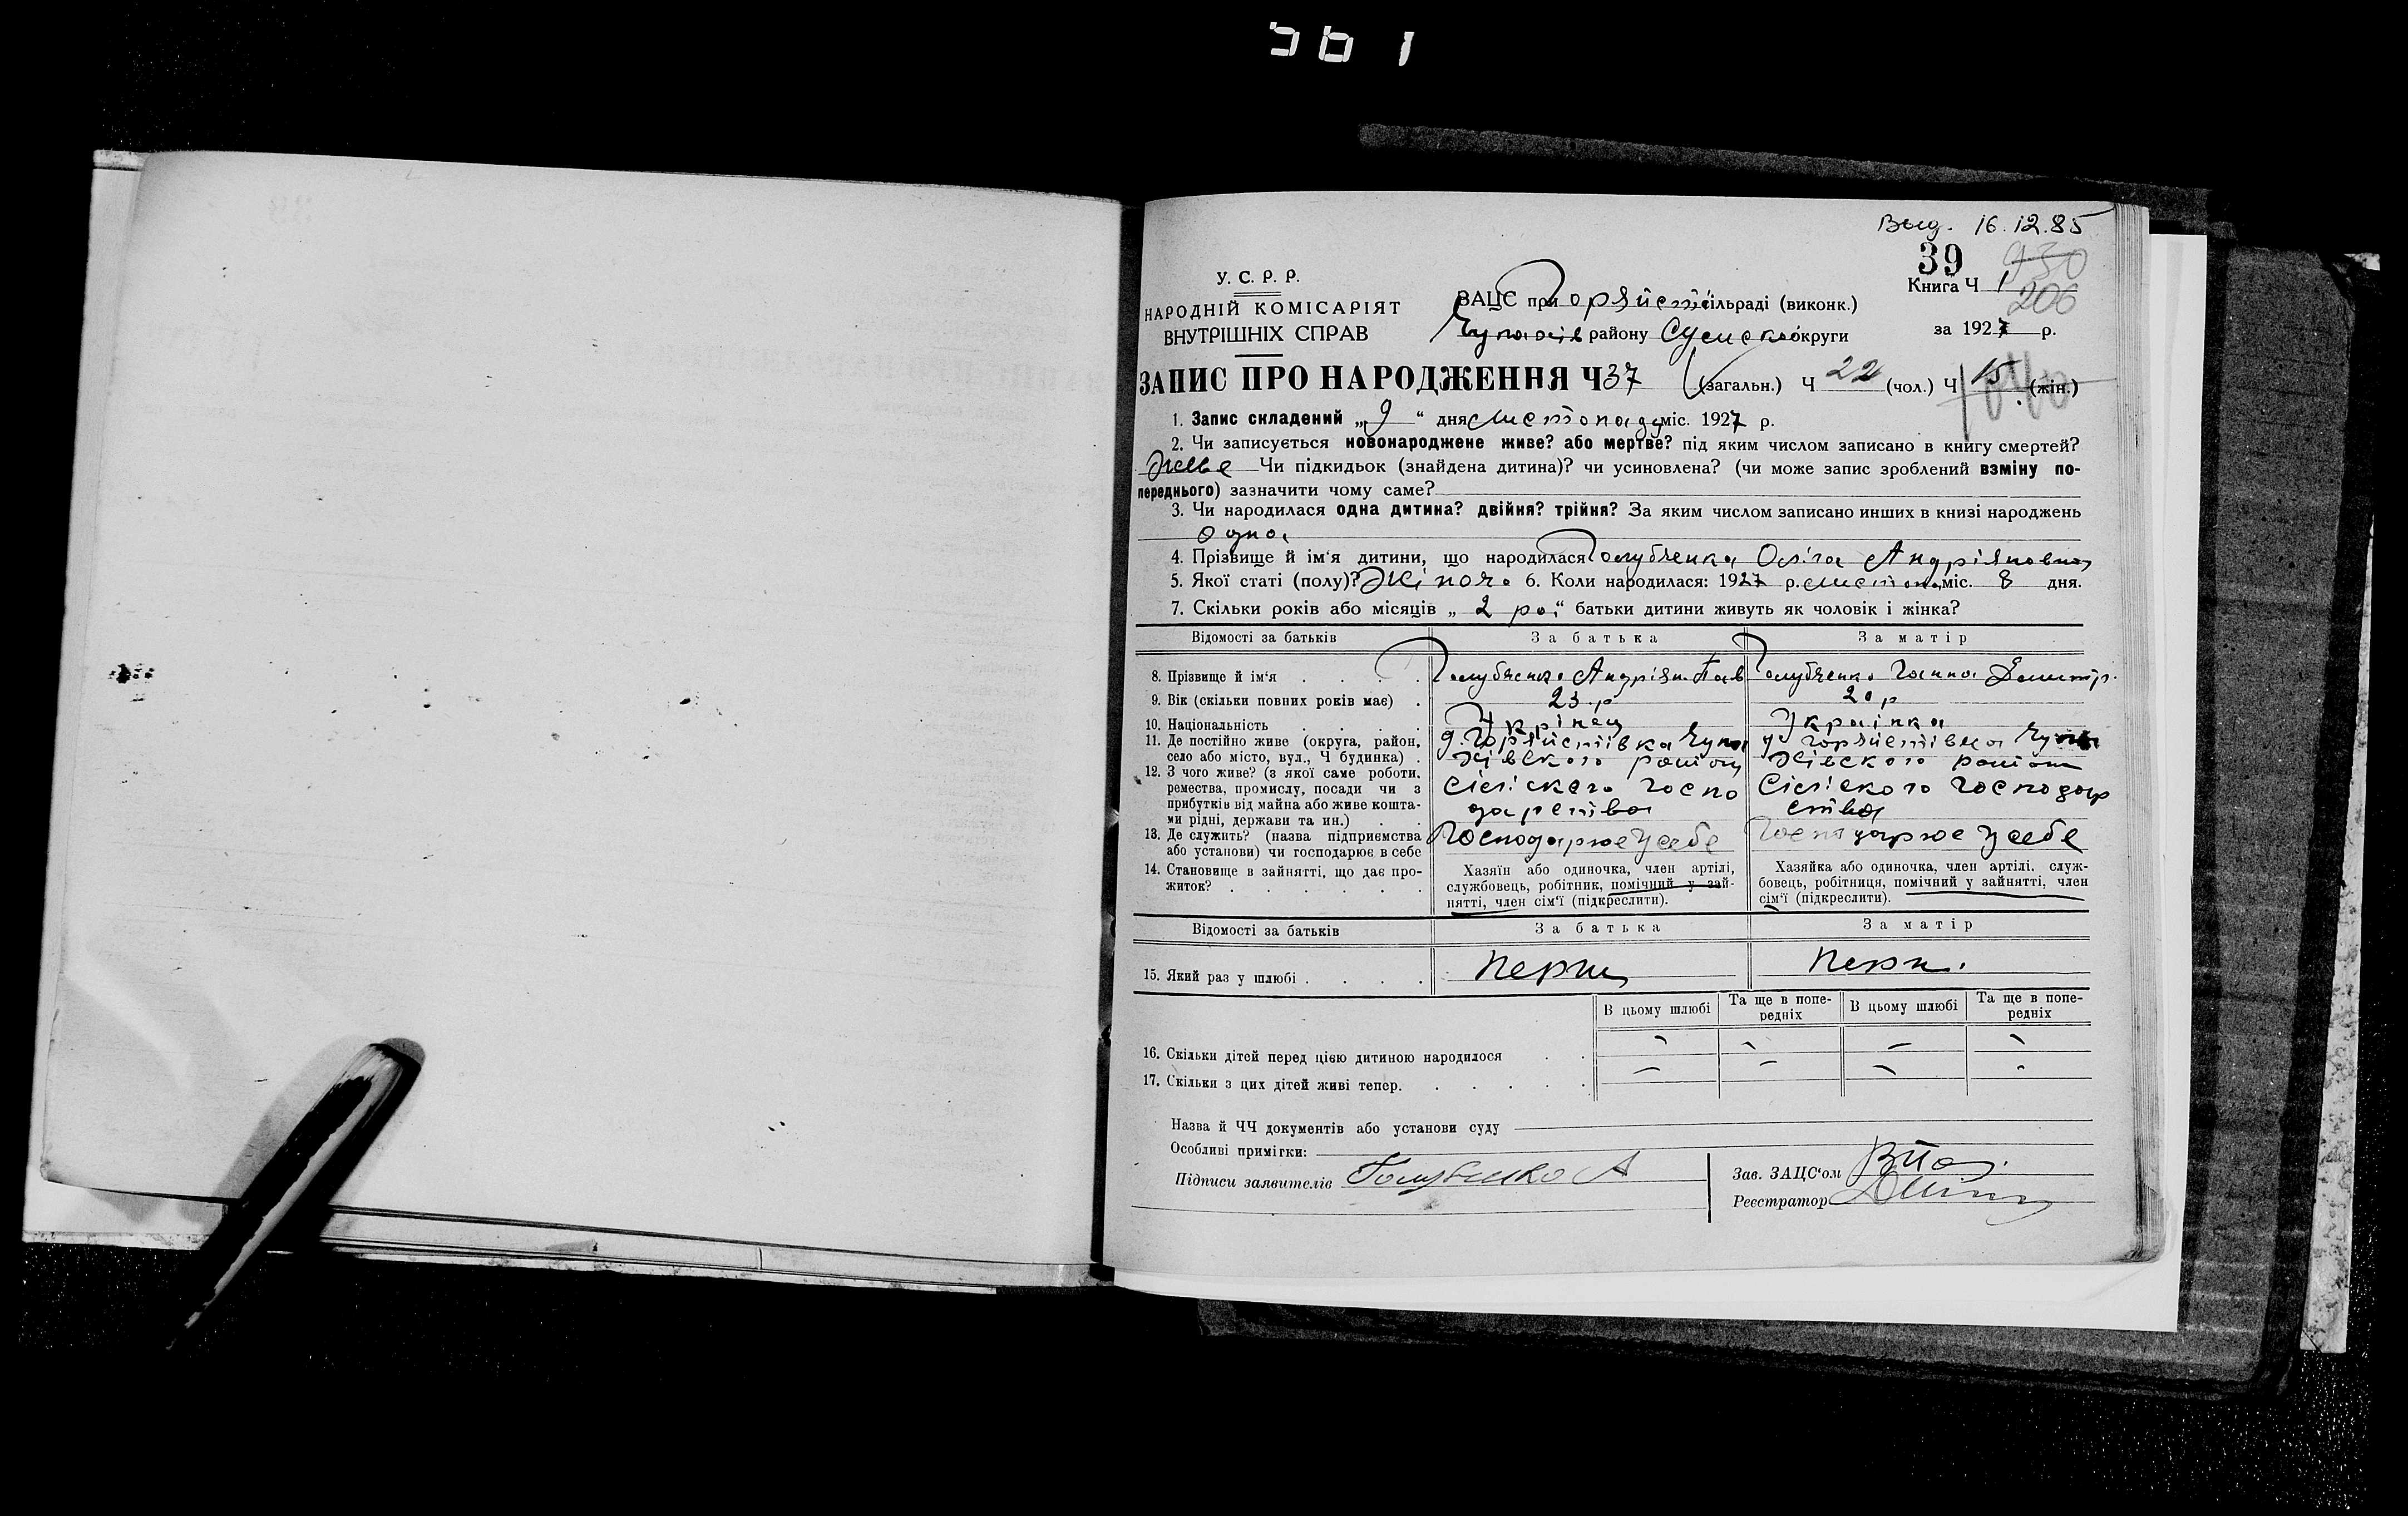 Выд. 16.12.85
39 930
Книга Ч 1
206
У. С. Р. Р.
НАРОДНІЙ КОМІСАРІЯТ
ВНУТРІШНІХ СПРАВ
ЗАЦС при сільраді (виконк.)
району Сумської округи
за 1927 р.
ЗАПИС ПРО НАРОДЖЕННЯ Ч 37 (загальн.) Ч 22 (чол.) Ч 15 (жін.)
1. Запис складений „9“ дня листопаду міс. 1927 р.
2. Чи записується новонароджене живе? або мертве? під яким числом записано в книгу смертей?
живе Чи підкидьок (знайдена дитина)? чи усиновлена? (чи може запис зроблений взміну по-
переднього) зазначити чому саме?
3. Чи народилася одна дитина? двійня? трійня? За яким числом записано инших в книзі народжень
одна
4. Прізвище й ім‘я дитини, що народилася Голубченка Ольга Андріяновна
5. Якої статі (полу)? Жіноча 6. Коли народилася: 1927 р. листопа міс. 8 дня.
7. Скільки років або місяців „2 ро“ батьки дитини живуть як чоловік і жінка?
Відомості за батьків За батька За матір
8. Прізвище й ім‘я Голубченко Андріян Пав Голубченко Ганна Димитр.
9. Вік (скільки повних років має) 23 р 20 р
10. Національність Укрінец Украінка
11. Де постійно живе (округа, район,
село або місто, вул., Ч будинка)
жівського району жівского
12. З чого живе? (з якої саме роботи,
ремества, промислу, посади чи з
прибутків від майна або живе кошта-
ми рідні, держави та ин.)
Сільского госпо Сільского господар
дарства ства
13. Де служить? (назва підприємства
або установи) чи господарює в себе
Господарює у себе Господарює у себе
14. Становище в зайнятті, що дає про-
житок?
Хазяїн або одиночка, член артілі,
службовець, робітник, помічний у зай-
нятті, член сім‘ї (підкреслити).
Хазяйка або одиночка, член артілі, служ-
бовець, робітниця, помічний у зайнятті, член
сім‘ї (підкреслити).
Відомості за батьків За батька За матір
15. Який раз у шлюбі Перш Перш.
В цьому шлюбі Та ще в попе-
редніх В цьому шлюбі Та ще в попе-
редніх
16. Скільки дітей перед цією дитиною народилося - - - -
17. Скільки з цих дітей живі тепер. - - - -
Назва й ЧЧ документів або установи суду
Особливі примітки:
Підписи заявителів Голубченко А
Зав. ЗАЦС‘ом
Реєстратор